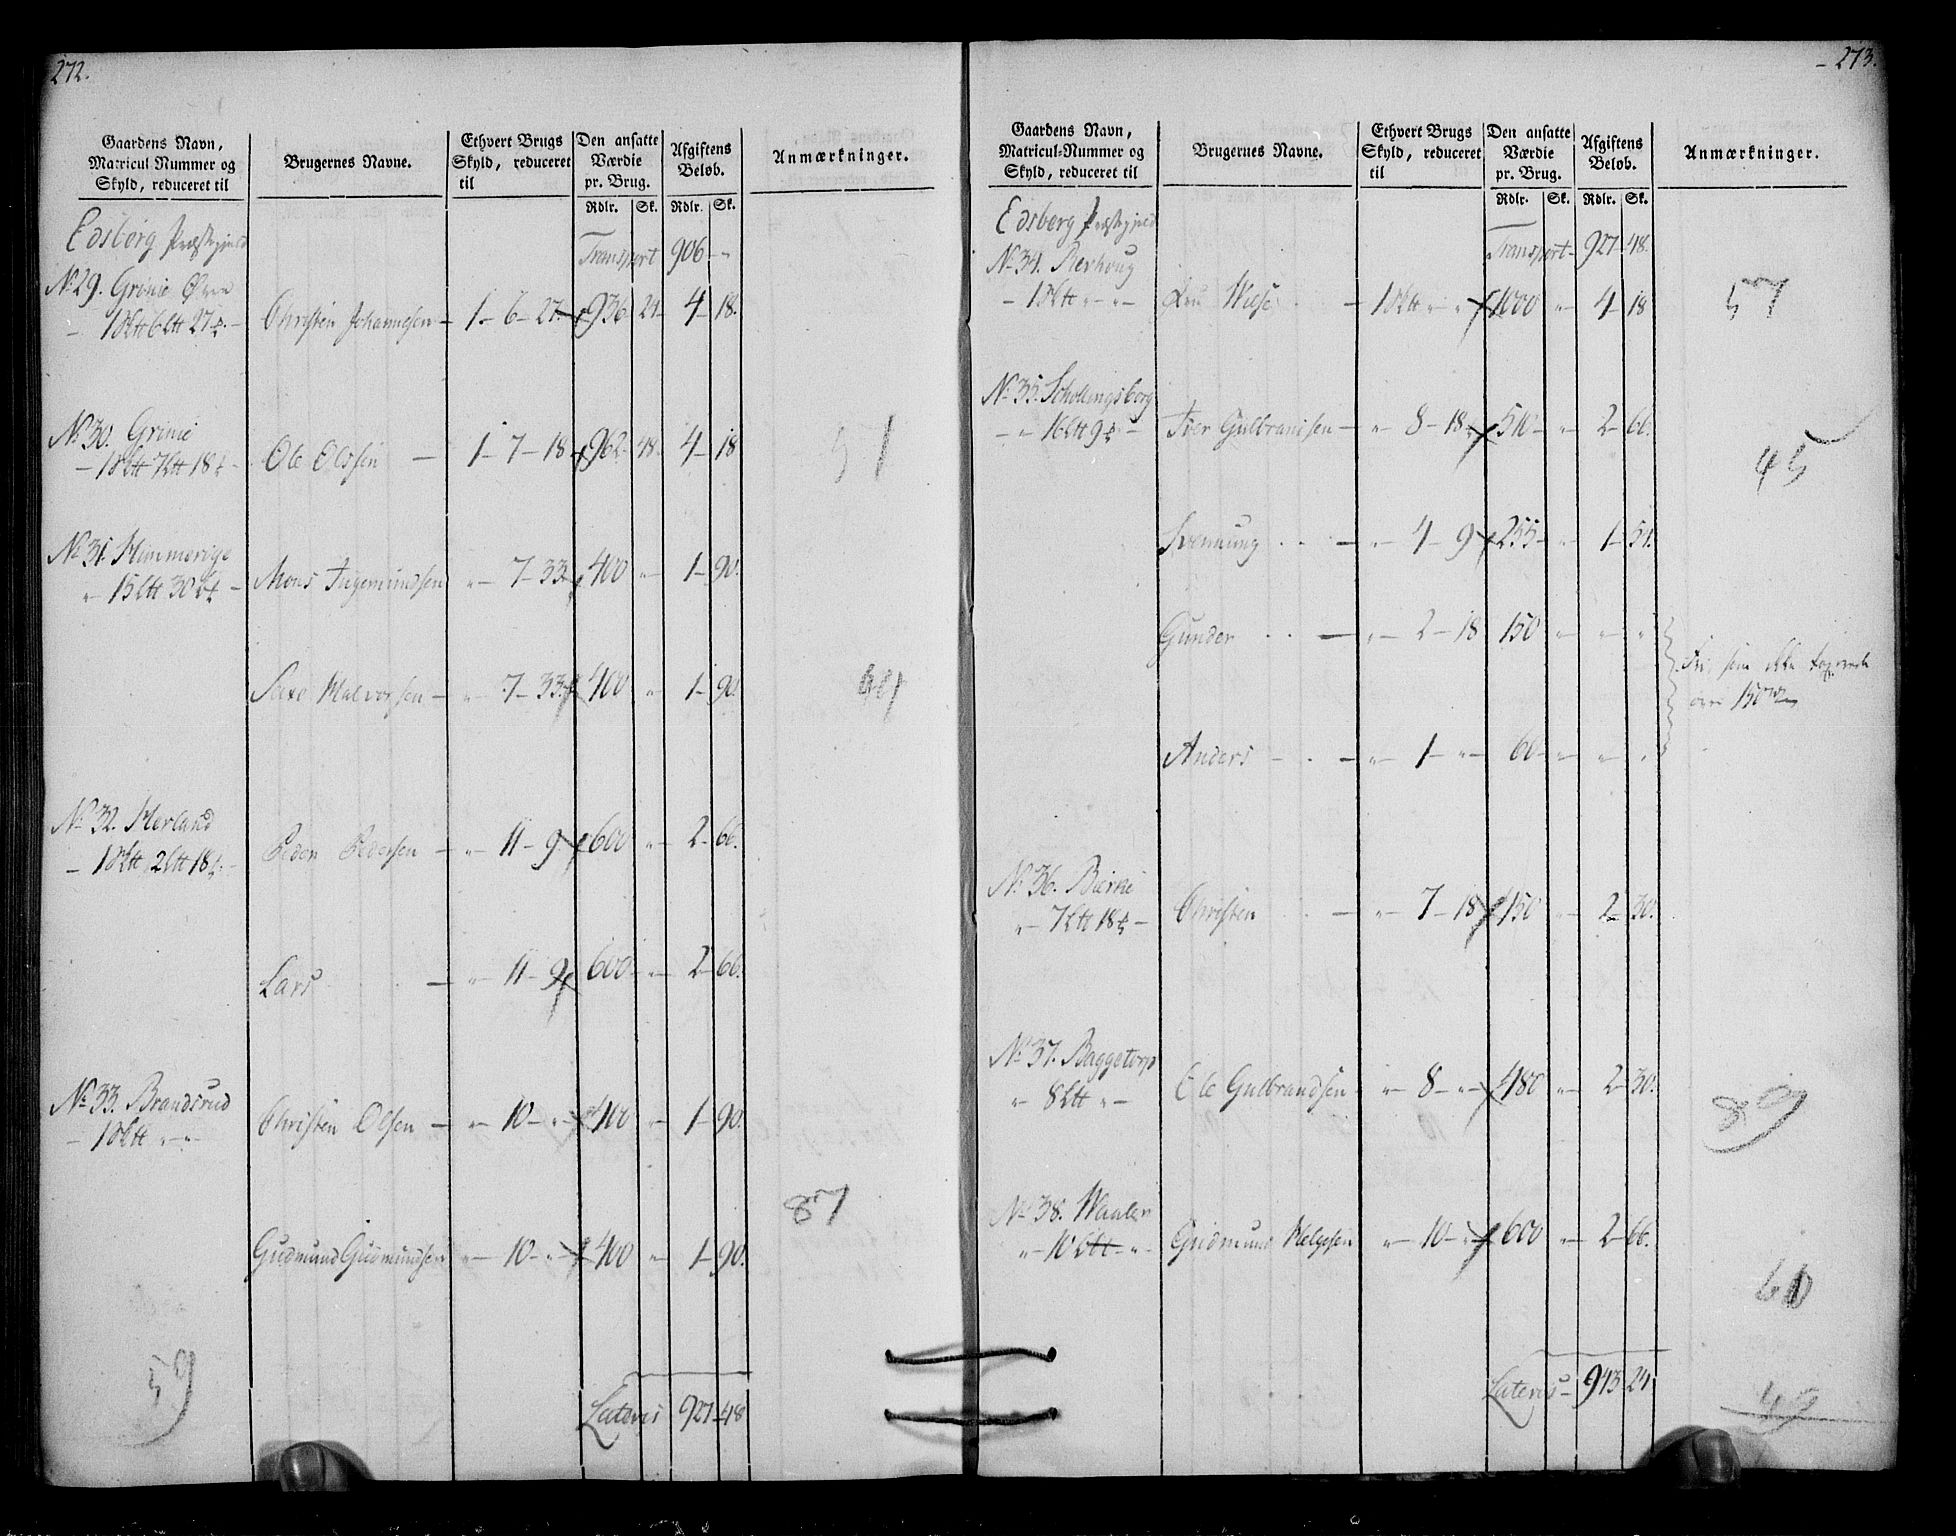 272.
Gaardens Navn,
Matricul-Nummer og
Skyld, reduceret til
Brugernes Navne.
Ethvert Brugs
Skyld, reduceret
til
Den ansatte
Værdie
pr. Brug.
Afgiftens
Beløb.
Anmærkninger.
Rdlr. Sk. Rdlr. Sk.
Edsberg Præstegjeld
Transport 906 - "
No 29. Grinie Øvre
Christen Johannesen - 1 - 6 - 27 - 936 24 4 - 18.
No 30. Grinie
Ole Olssen - 1 - 7 - 18 962 - 48 - 4 - 18
No 31. Himmerige
Mons Ingemundsen " - 7 - 33 - 400 " 1 - 90.
Halvorsen - " 7 - 33 400 " 1 - 90.
No 32. Herland
Peder Pedersen - " 11 - 9 600 " 2 - 66.
Lars - " 11 - 9 600 " 2 - 66.
No 33. Brandsrud
Christen Olsen - " 10 - " 400 " 1 - 90.
Gudmund Gudmundsen " 10 - " 400 " 1 - 90.
Lateris 927 - 48
51
87
59
273.
Gaardens Navn,
Matricul-Nummer og
Skyld, reduceret til
Brugernes Navne.
Ethvert Brugs
Skyld, reduceret
til
Den ansatte
Værdie
pr. Brug.
Afgiftens
Beløb.
Anmærkninger.
Rdlr. Sk. Rdlr. Sk.
Edsberg Præstegjeld
Transport - 927 - 48.
No 34. Berhoug
Wiese - 1000 " 4 - 18
57
No 35. Schollingsberg
Iver Gulbrandsen - " 8 - 18 510 - " 2 - 66.
45
Svennung - " 4 - 9 255 - " 1 - 54.
Gunder - " 2 - 18 150 " " "
Fri, som ikke
over 150
Anders - " 1 - " 60 - " " "
No 36. Bierke
Christen - " 7 - 18 450 " 2 - 30.
No 37. Baggetorp
Ole Gulbrandsen " 8 - " 480 " 2 - 30.
89
No 38. Waaler
Gudmund Helgesen " 10 - " 600 " 2 - 66.
60
Lateris - 943 24
49